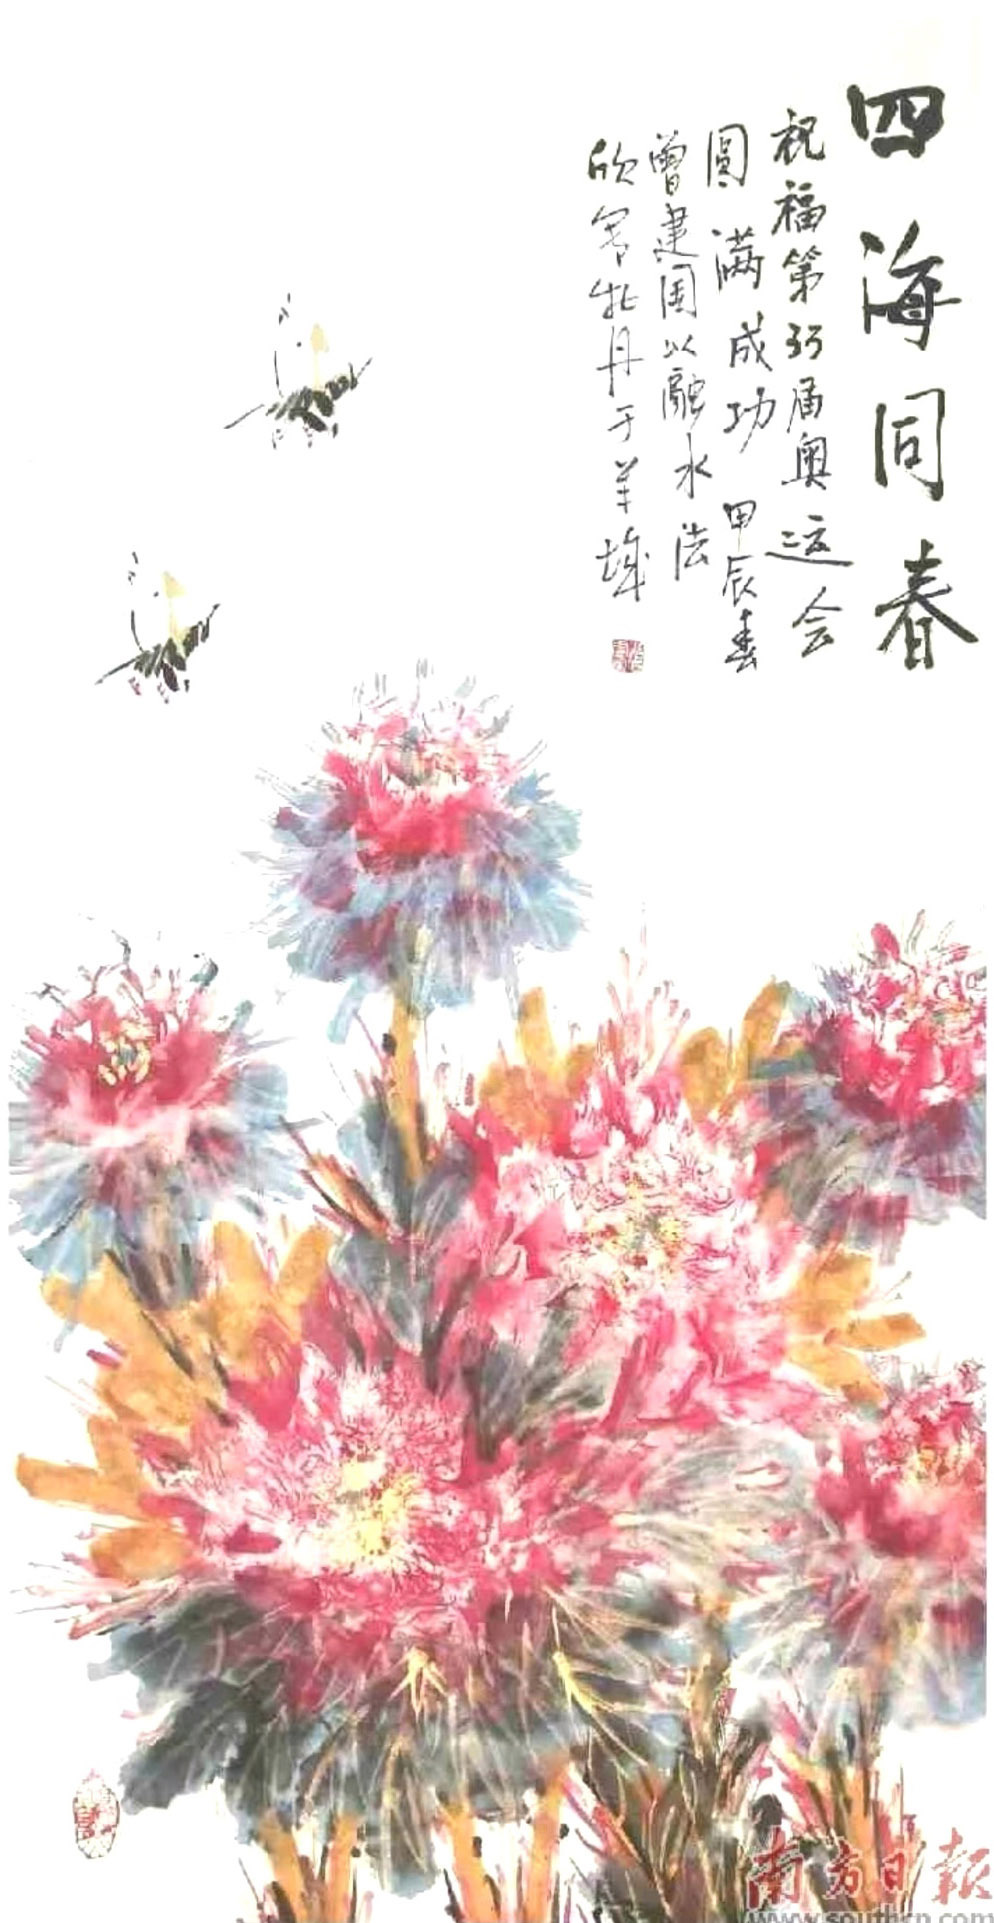 四海同春
祝福第33届奥运会
圆满成功 甲辰春
曾建国以融水法
欣写牡丹于羊城
南方日报
www.southcn.com